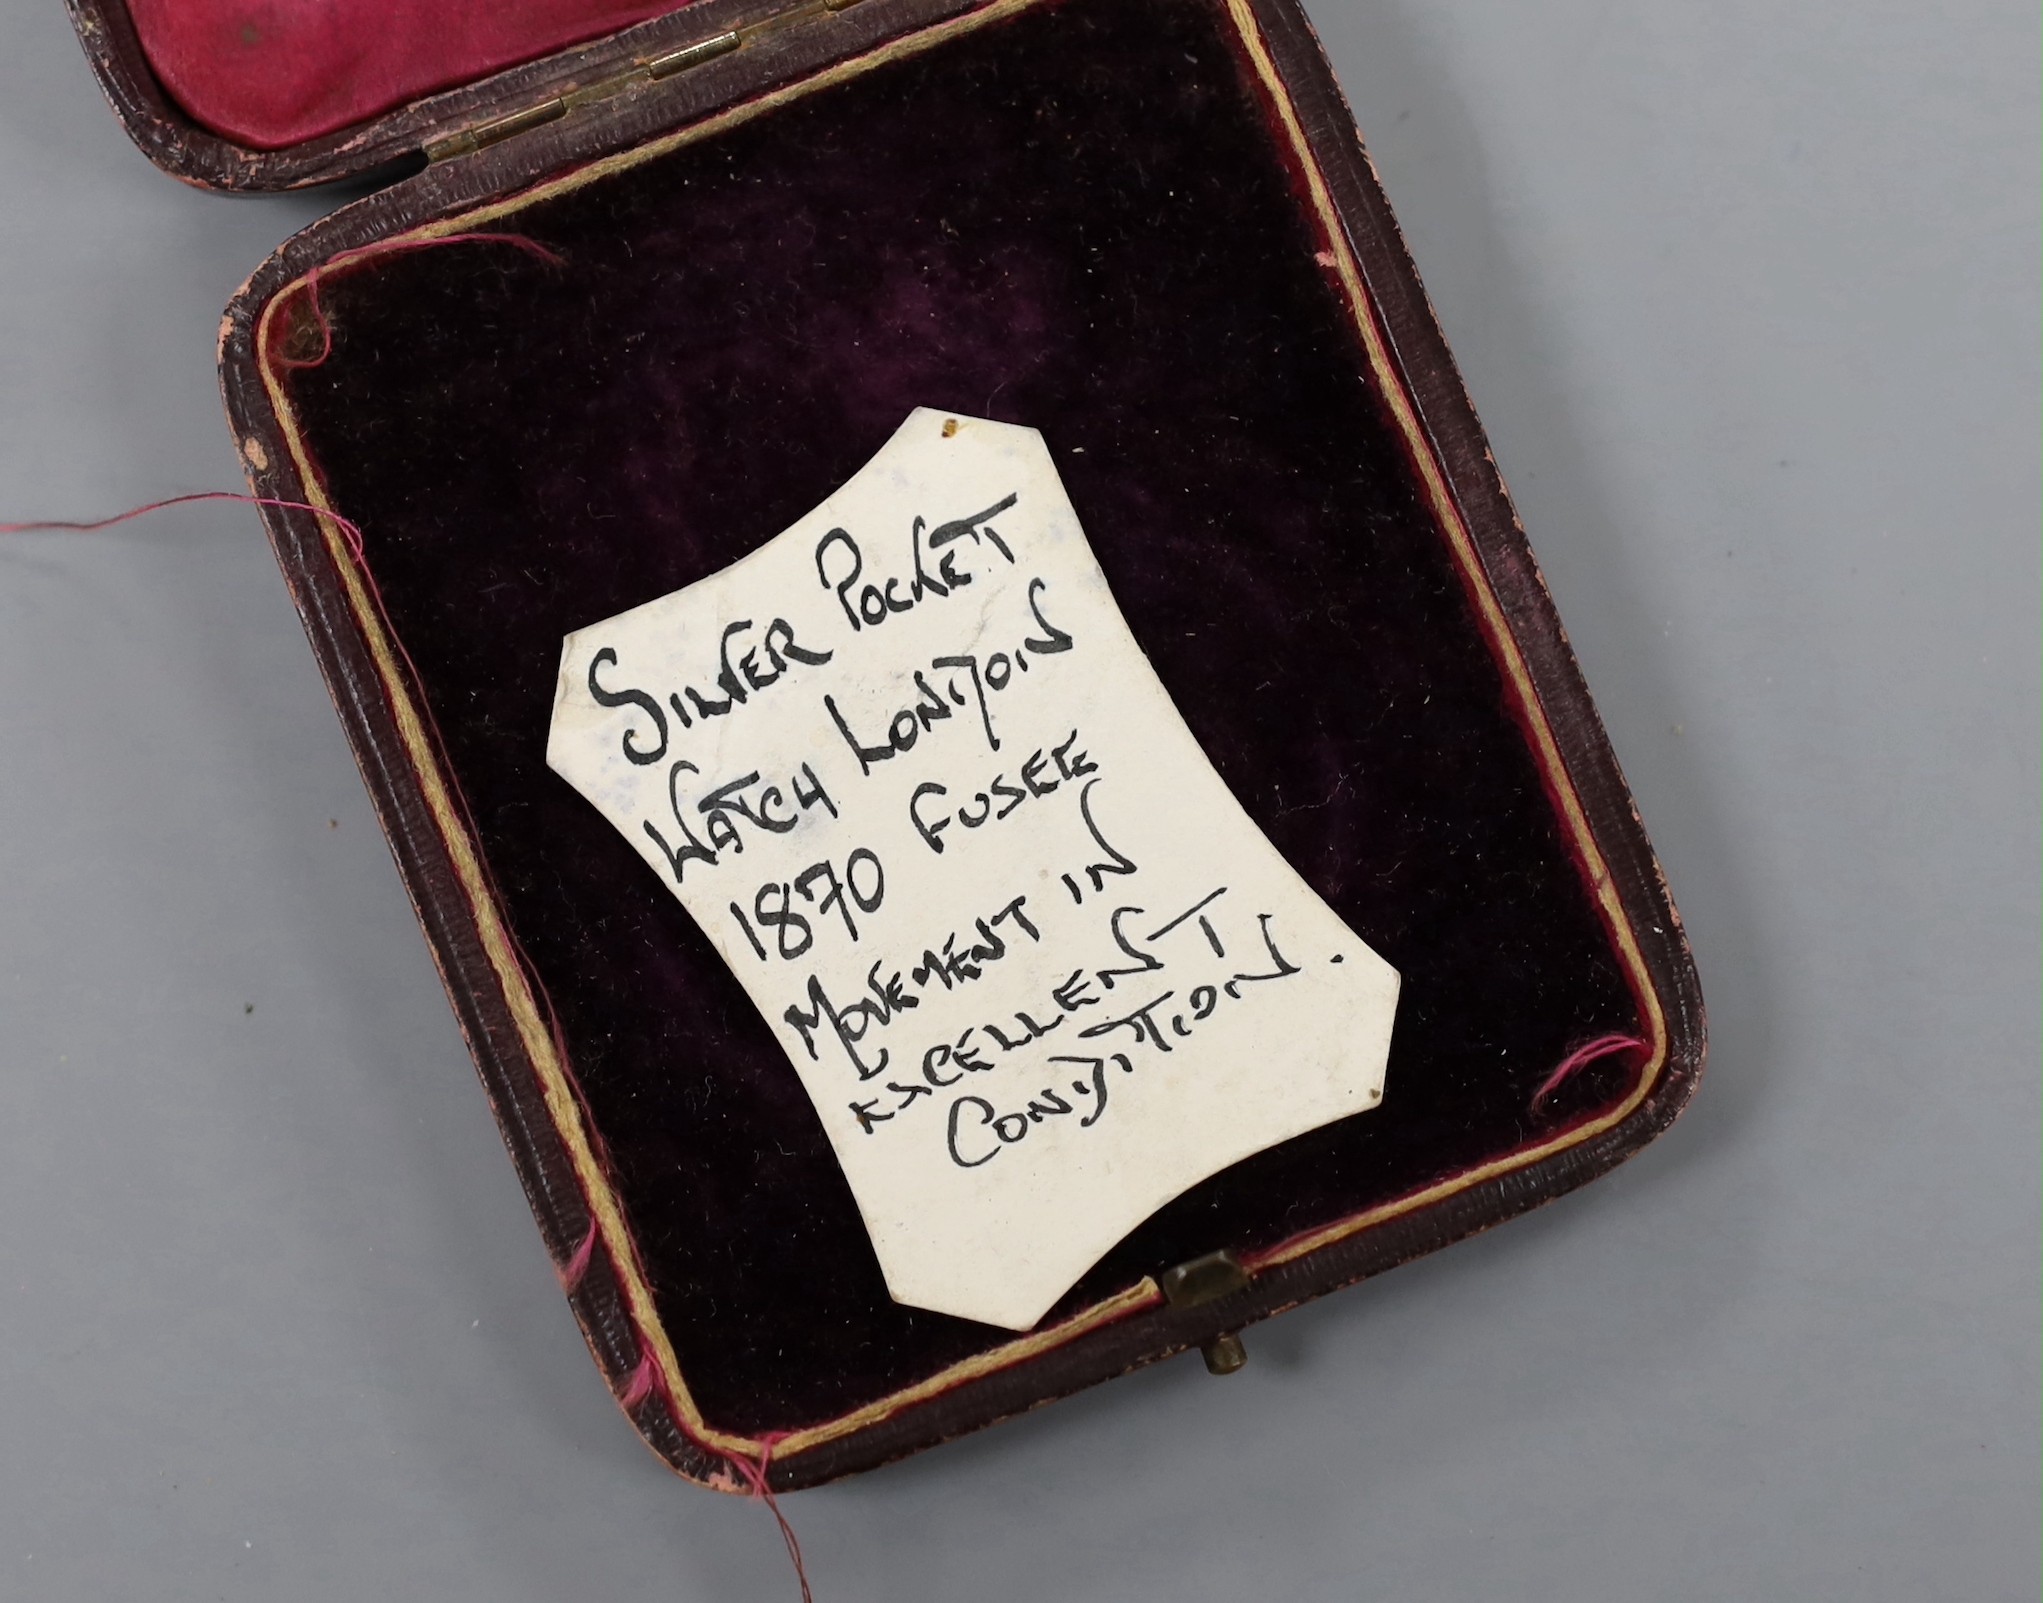 SILVER POCKET
WATCH LONDON
1870 FUSEE
MOVEMENT IN
EXCELLENT
CONDITION.